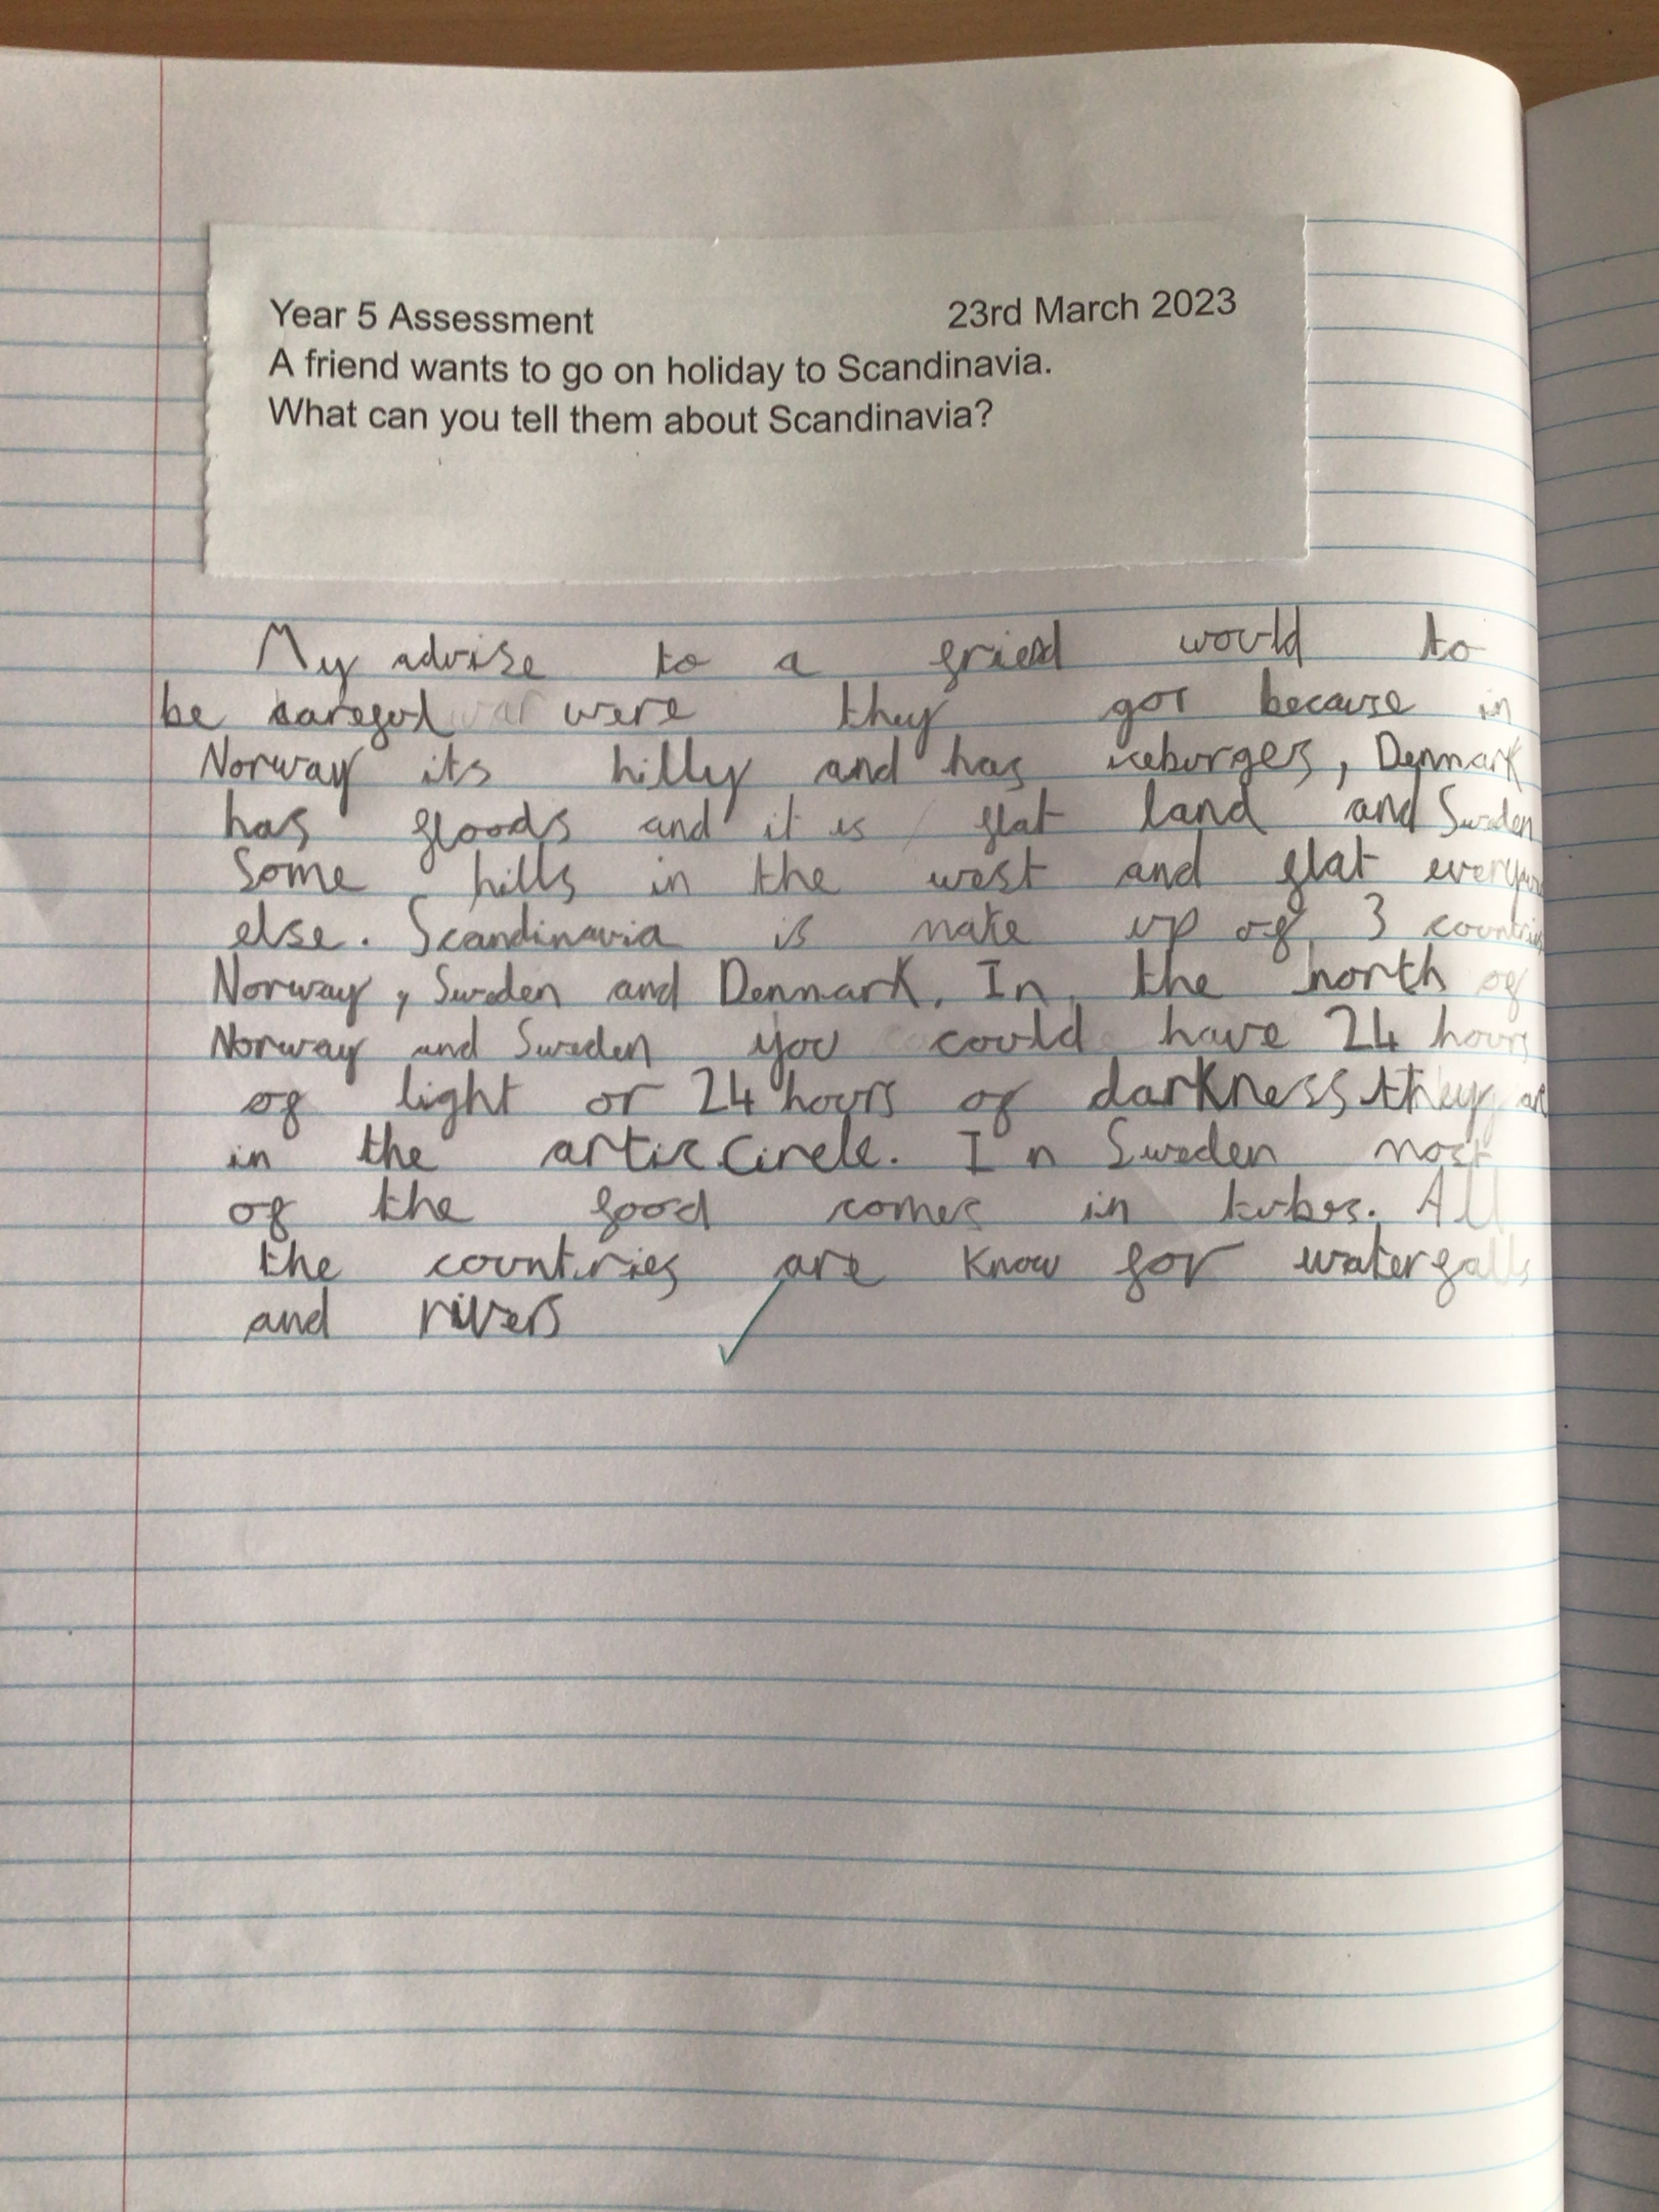 Year 5 Assessment 23rd March 2023
A friend wants to go on holiday to Scandinavia.
What can you tell them about Scandinavia?
My advise to a friend would to
be careful were they got because in
Norway its hilly and has iceburges, Denmark
has floods and it is flat land and Sweden
some hills in the west and flat
else. Scandinavia is make up of 3 countries
Norway, Sweden and Denmark. In the north of
Norway and Sweden you could have 24 hours
of light or 24 hours of darkness they are
in the artic circle. In Sweden most
of the food comes in tubes. All
the countries are know for waterfalls
and rivers